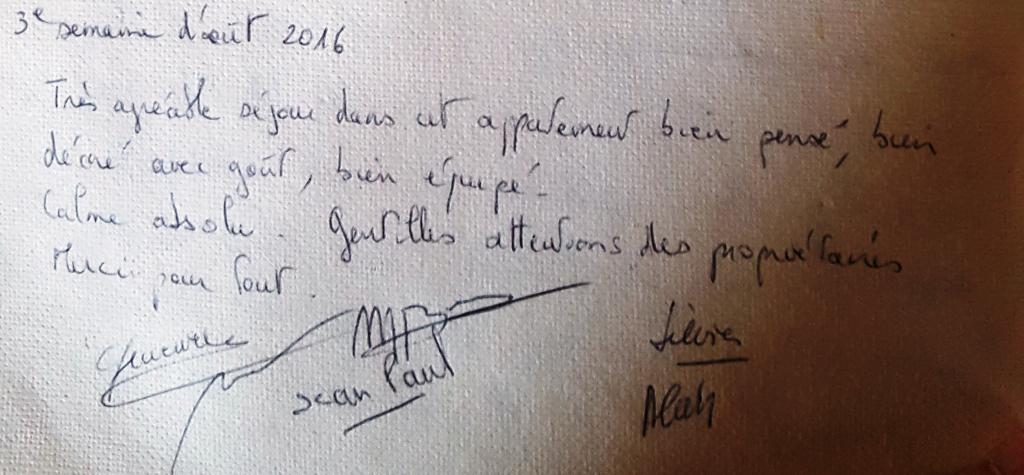 3e semaine d'août 2016
Très agréable séjour dans cet appartement bien pensé, bien
décoré avec goût, bien équipé.
Calme absolu. Gentilles attentions des propriétaires
Merci pour tout.
Jean Paul